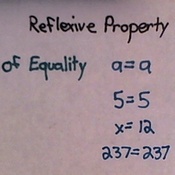 Reflexive Property
of Equality a=a
5=5
x=12
237=237